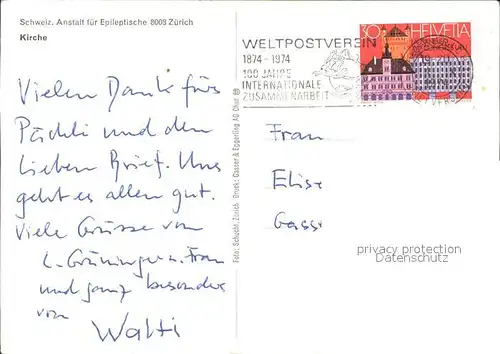 Schweiz. Anstalt für Epileptische 8008 Zürich
Kirche
Vielen Dank fürs
Päckli und den
lieben Brief. Uns
geht es allen gut.
Viele Grüsse von
L. Grüninger u. Frau
und ganz besonders
von Walti
Foto: Schucht, Zürich Druck: Gasser & Eggerling AG Chur
WELTPOSTVEREIN
1874-1974
100 JAHRE
INTERNATIONALE
ZUSAMMENARBEIT
30 HELVETIA
Frau
Elise
Gass
privacy protection
Datenschutz